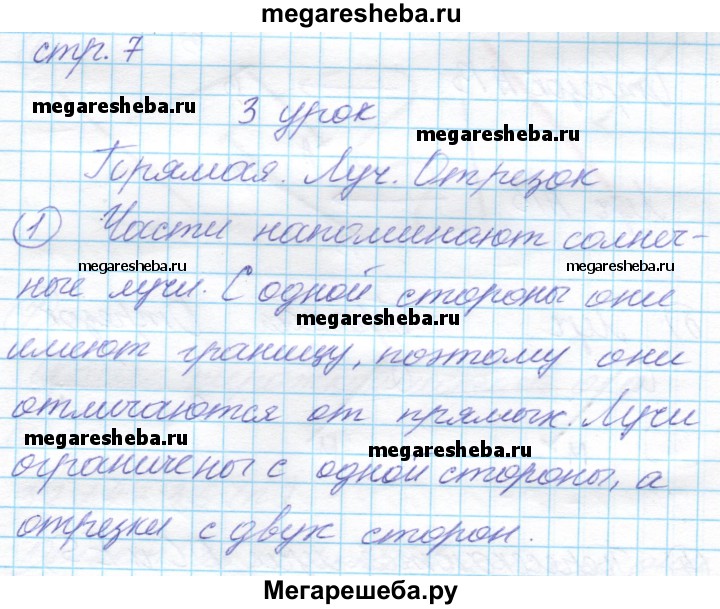 megaresheba.ru
стр. 7
megaresheba.ru
3 урок
megaresheba.ru
Прямая. Луч. Отрезок
1 Части напоминают солнеч-
megaresheba.ru megaresheba.ru
ные лучи. С одной стороны они
megaresheba.ru
имеют границу, поэтому они
отличаются от прямых. Лучи
megaresheba.ru megaresheba.ru
ограничены с одной стороны, а
отрезки с двух сторон.
Мегарешеба.ру